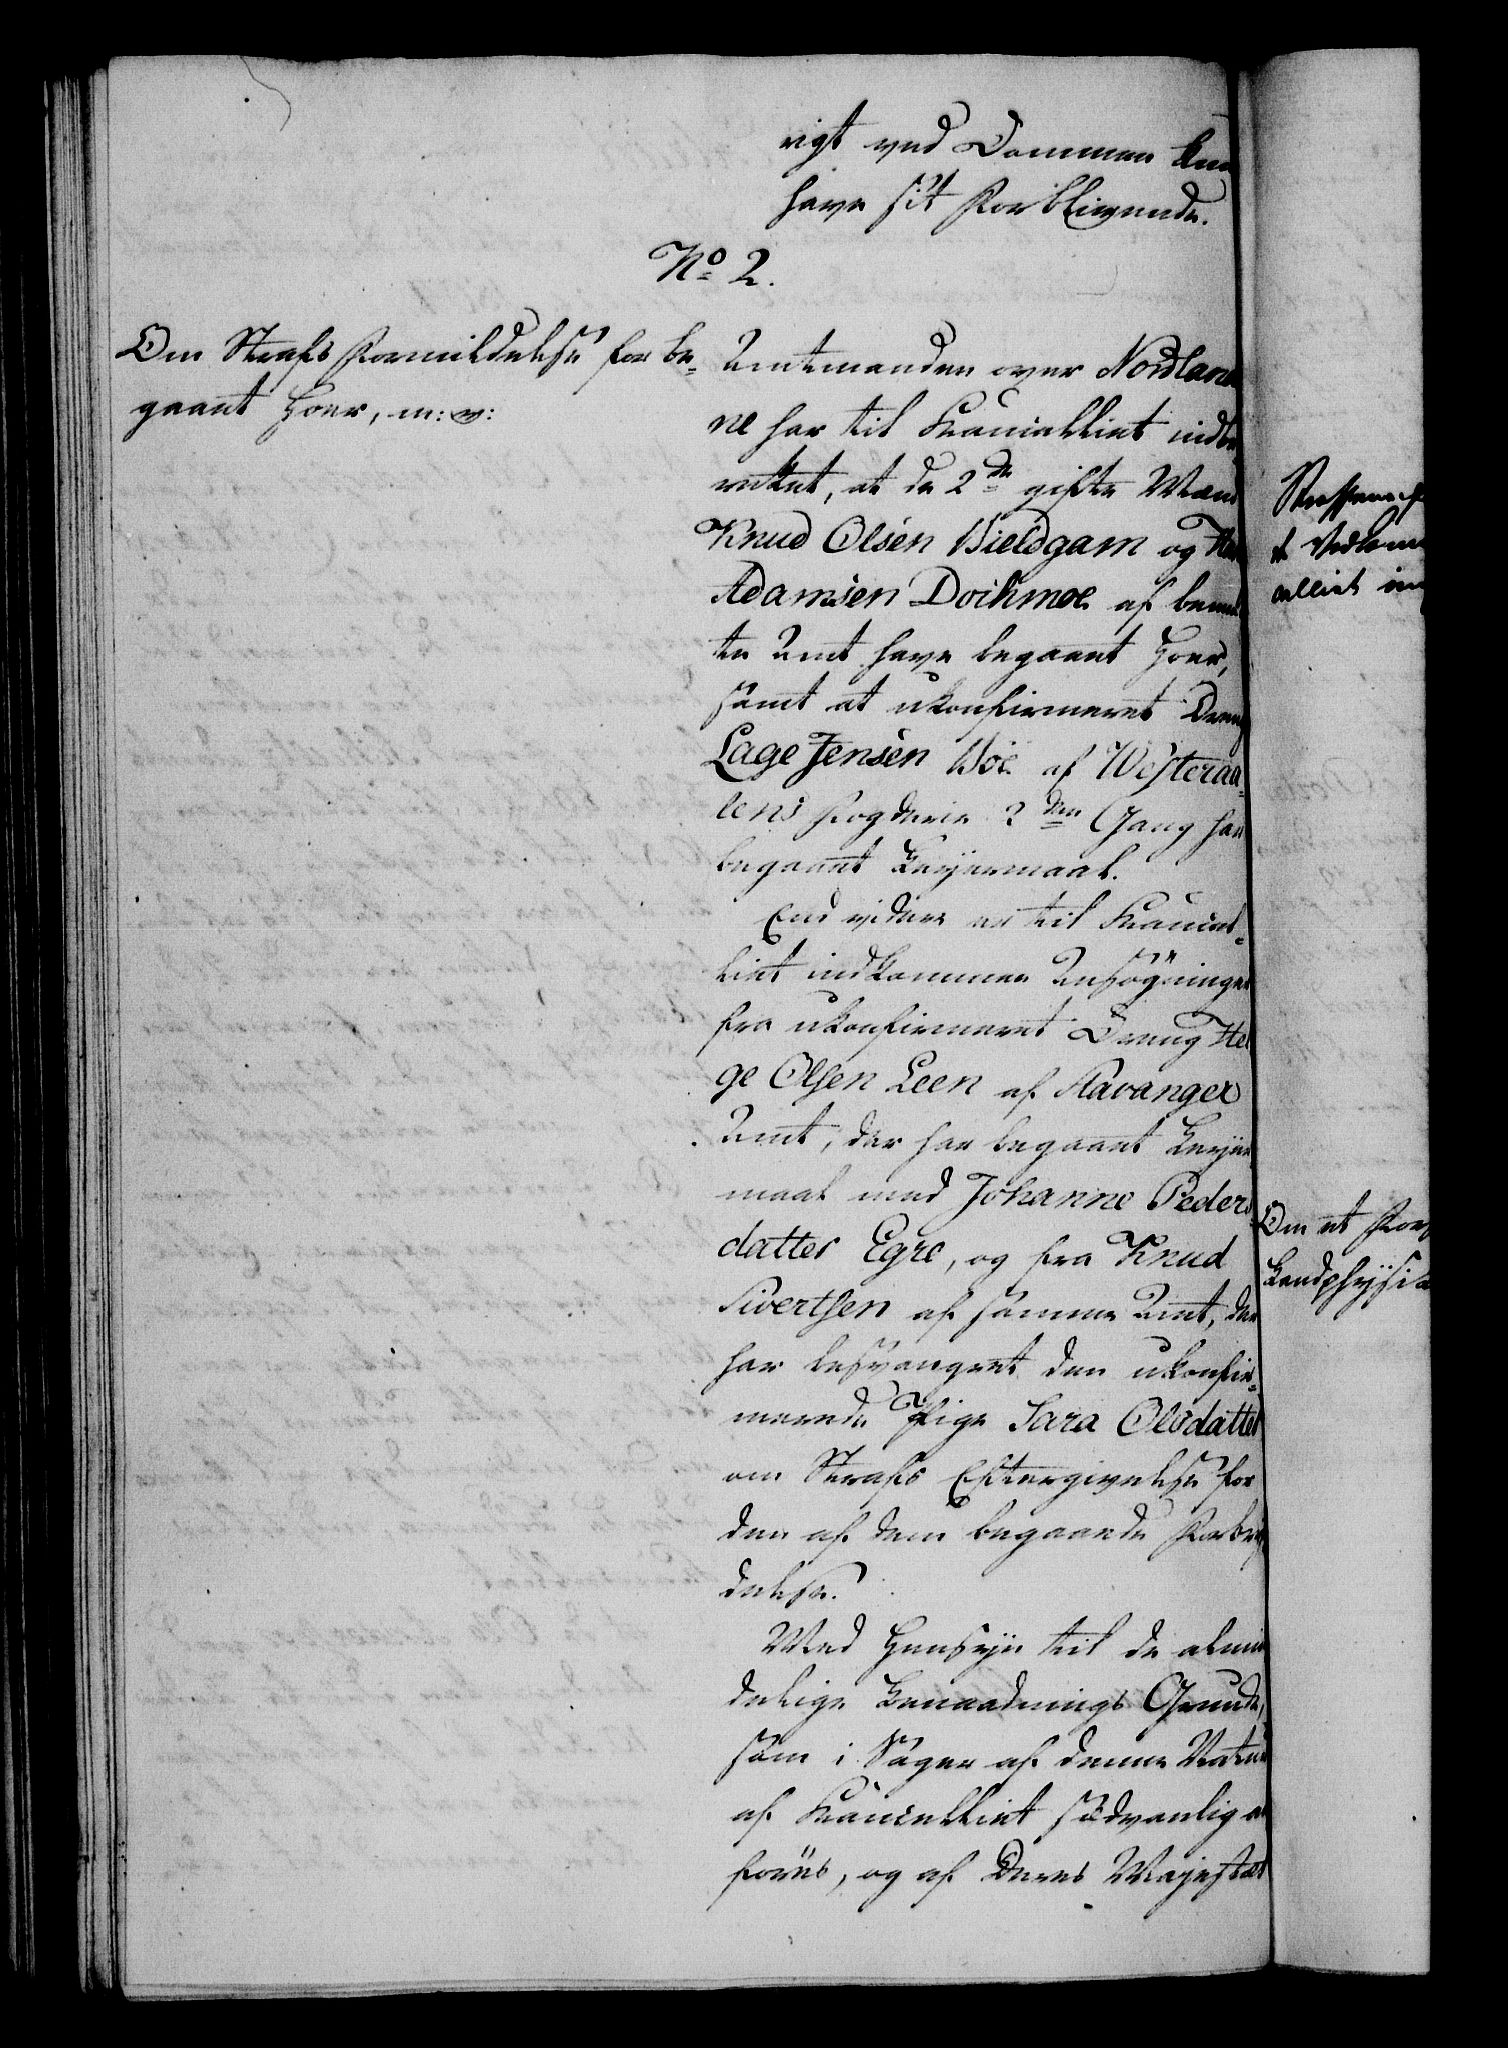 rigt ved Dommen kan
have sit Forblivende.
No 2.
Om Strafs Formildelse for be-
gaaet Hoer, m: v:
Amtmanden over Nordlan
ne har til Kancelliet indbe
rettet, at de 2de gifte Mænd
Knud Olsen Bieldgam og
Adamsen Doihmoe af benæv
te Amt have begaaet Hoer,
samt at ukonfirmeret Dreng
Lage Jensen Boe af Westeraa-
lens Fogderie 2den Gang har
begaaet Leyermaal.
End videre er til Kancel-
liet indkommen Ansøgninger
fra ukonfirmeret Dreng Hel
ge Olsen Leen af Stavanger
Amt, der har begaaet Leyer
maal med Johanne Peders
datter Egre, og fra Knud
Sivertsen af samme Amt, der
har besvangret den ukonfir-
merede Pige Sara Olsdatter
om Strafs Eftergivelse for
den af dem begaaede Forbry
delse.
Med Hensyn til de almin
delige Benaadnings Grunde,
som i Sager af denne Natur
af Kancelliet sædvanlig an
føres, og af Deres Majestæt
Straffen
et Vedkom
celliet in
Om et For
Landphysi